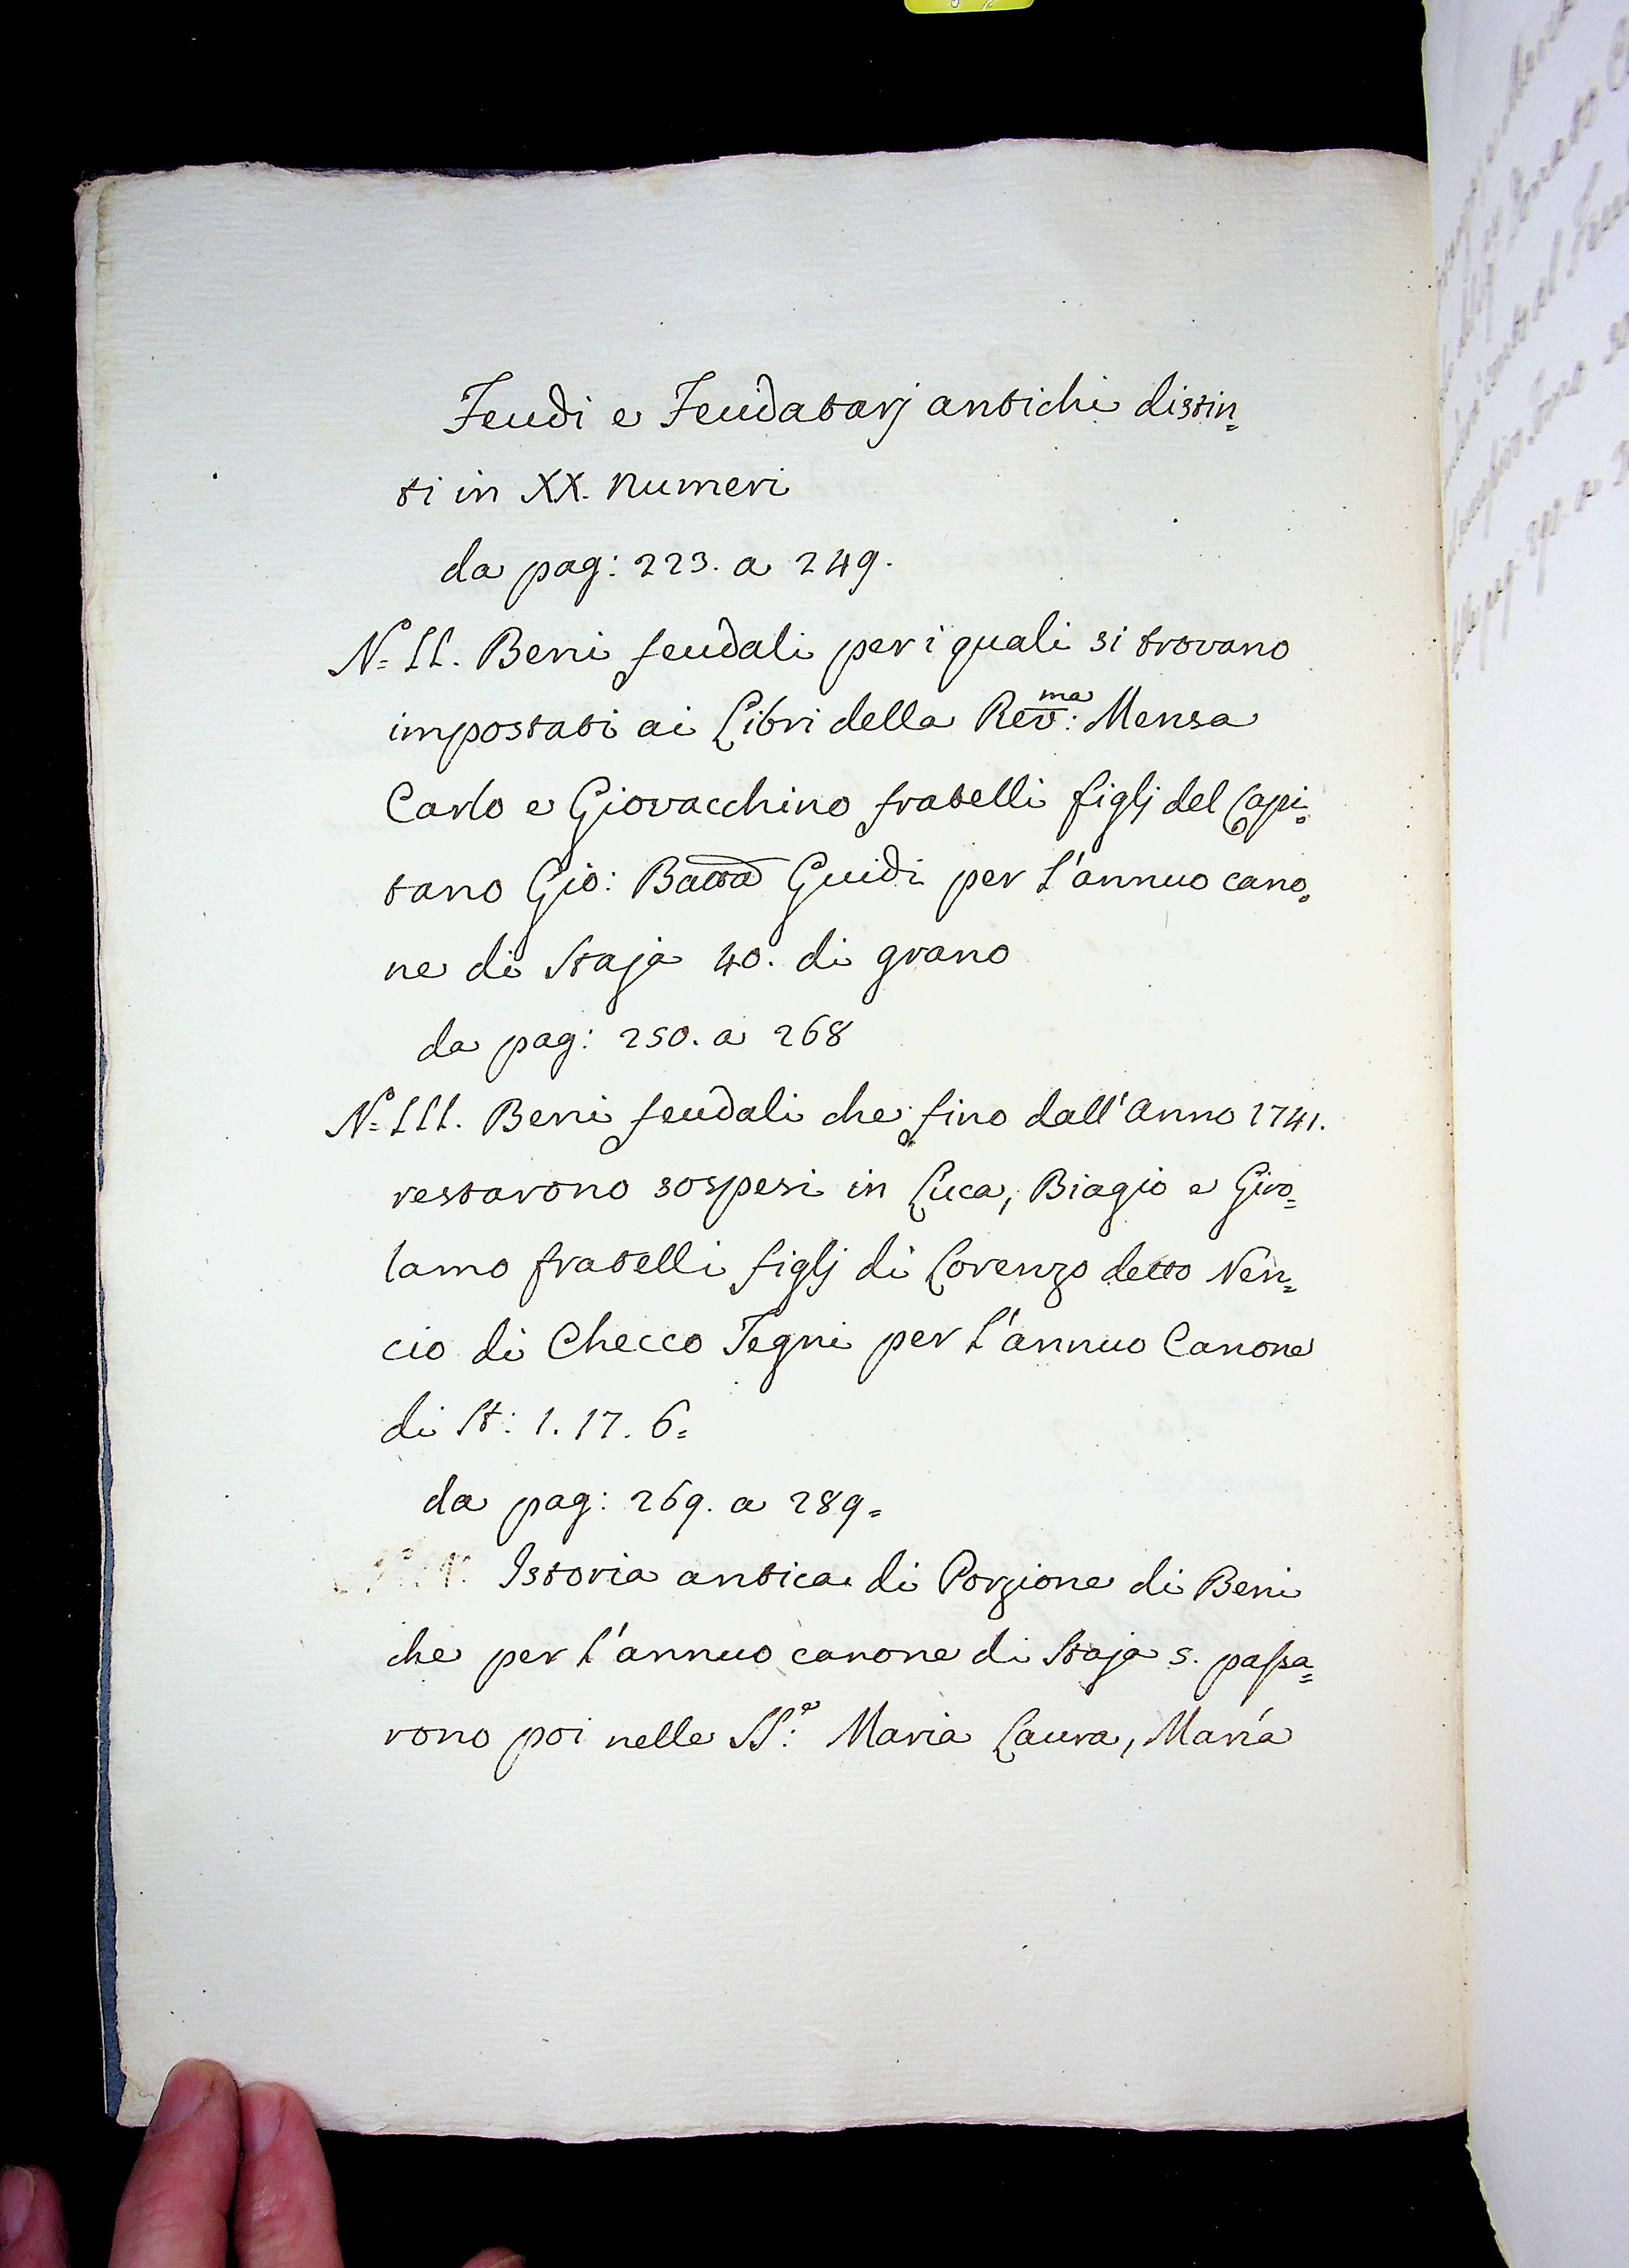 Feudi e Feudatarj antichi distin=
ti in XX. Numeri
da pag: 223. a 249.
N.° II. Beni feudali per i quali si trovano
impostati ai Libri della Rev:ma Mensa
Carlo e Giovacchino fratelli figlj del Capi=
tano Gio: Batta Guidi per l'annuo cano=
ne di Staja 40. di grano
da pag: 250. a 268
N.° III. Beni feudali che fino dall'Anno 1741.
restarono sospesi in Luca, Biagio e Giro=
lamo fratelli figlj di Lorenzo detto Nen=
cio di Checco Tegni per l'annuo Canone
di St: 1. 17. 6=
da pag: 269. a 289=
Istoria antica di Porzione di Beni
che per l'annuo canone di Staja 5. passa=
rono poi nelle SS:e Maria Laura, Maria